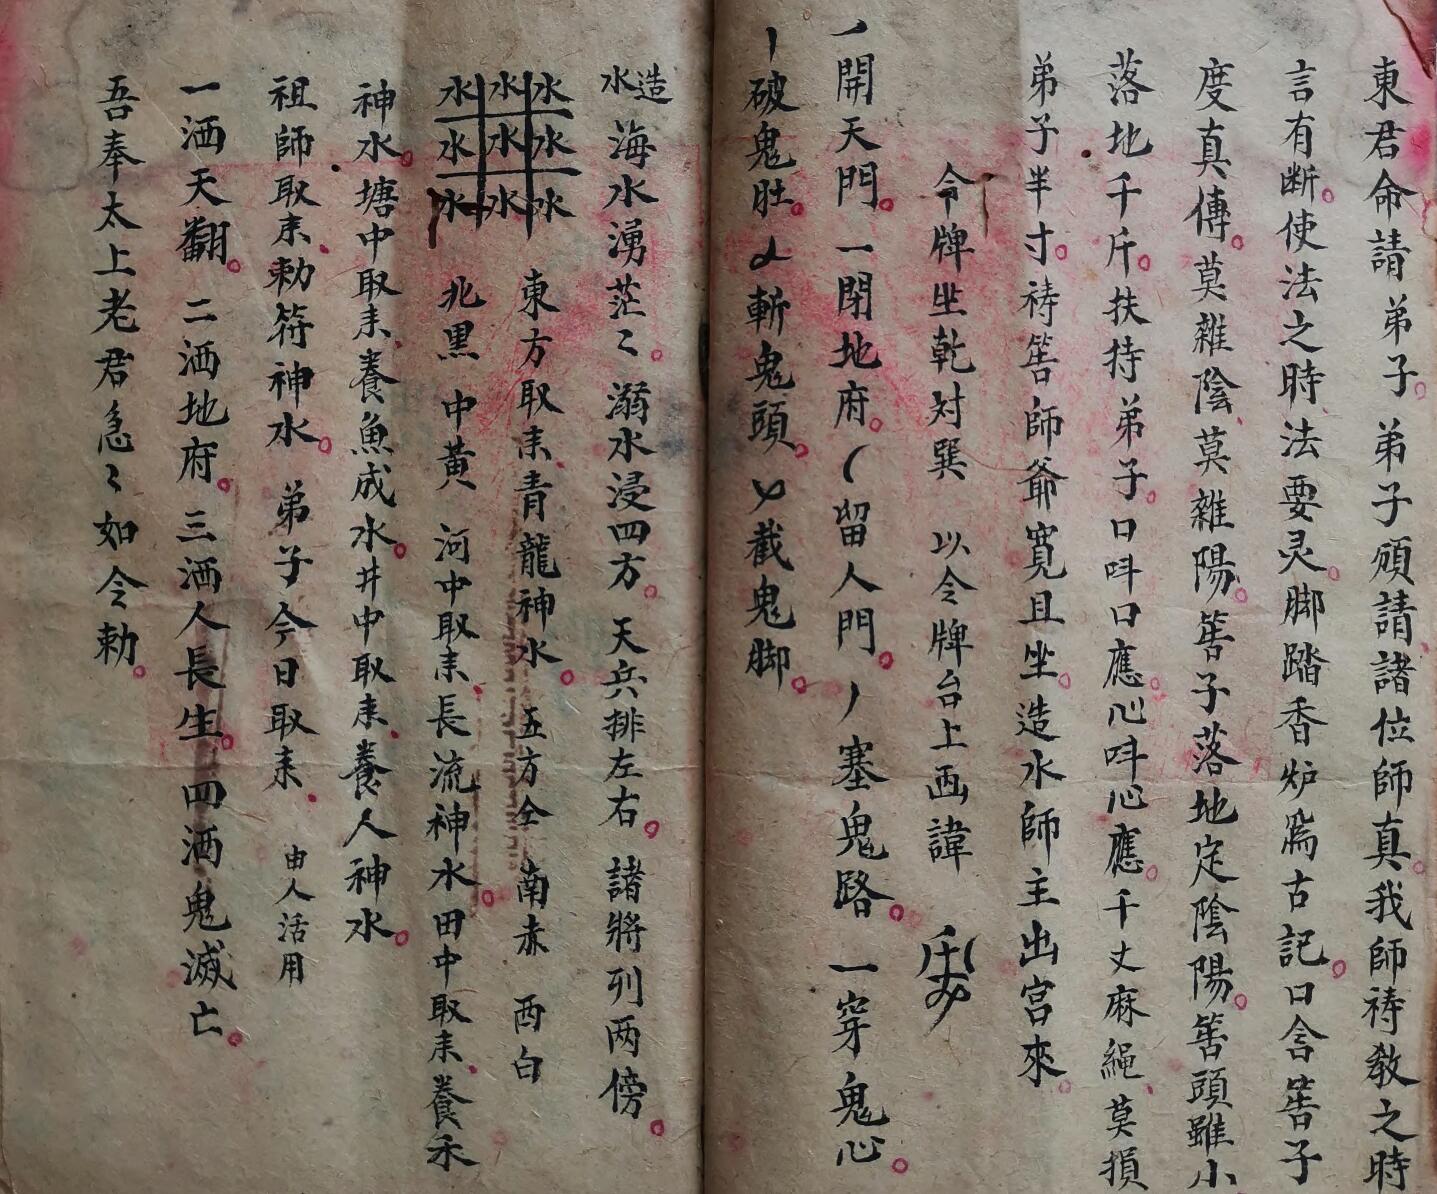 東君命請弟子弟子頋請諸位師真我師祷教之時
言有断使法之時法要灵脚踏香炉為古記口含筶子
度真傳莫雜陰莫雜陽筶子落地定陰陽筶頭雖小
落地千斤扶持弟子口呌口應心呌心應千丈麻繩莫損
弟子半寸祷筶師爺寬且坐造水師主出宮來
令牌坐乾对巽 以令牌台上画諱
開天門一閉地府留人門塞鬼路一穿鬼心
破鬼肚斬鬼頭截鬼脚
造水 海水湧茫〻溺水浸四方天兵排左右諸將列两傍
水水水
水水水
水水水
東方取来青龍神水五方仝 南赤 西白
北黑 中黃 河中取来長流神水田中取来養禾
神水塘中取来養魚成水井中取来養人神水
祖師取来勅符神水 弟子今日取来 由人活用
一洒天翻 二洒地府 三洒人長生四洒鬼滅亡
吾奉太上老君急〻如令勅